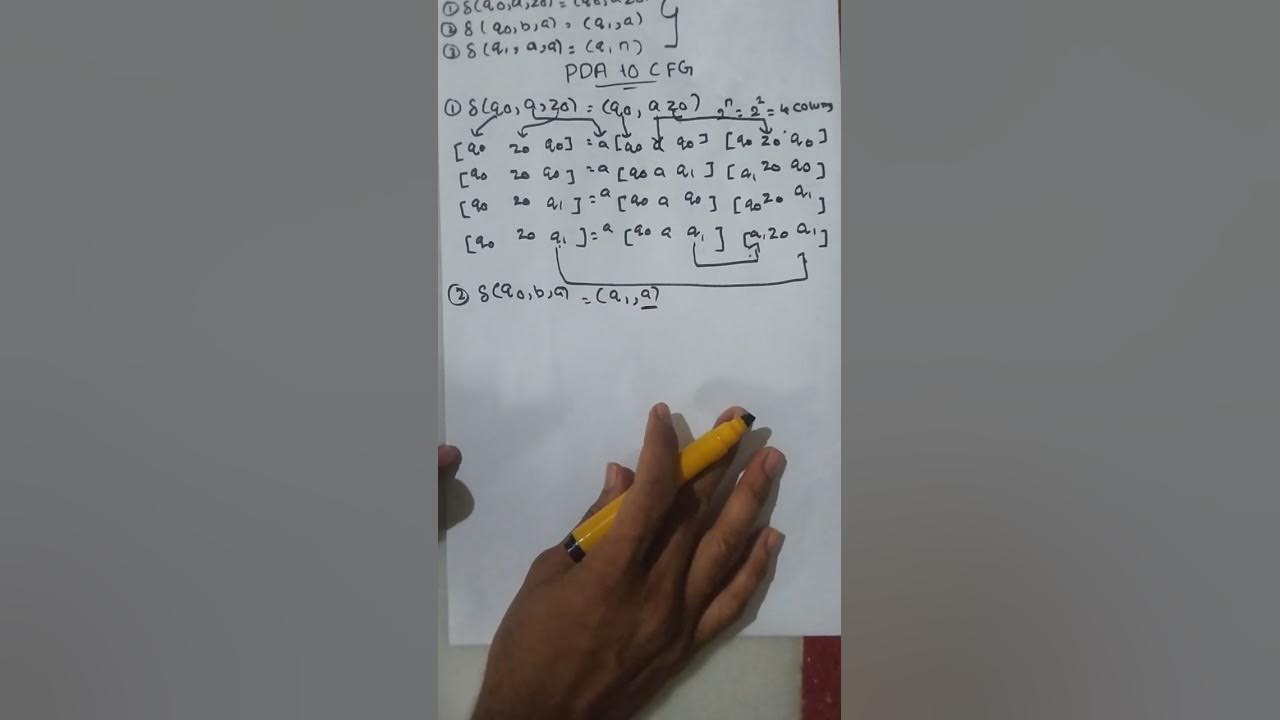 ① δ(q0,a,z0) = (q0,az0)
② δ(q0,b,a) = (q1,a)
③ δ(q1,a,a) = (q1,n)
PDA to CFG
① δ(q0,a,z0) = (q0,az0) 2^n = 2^2 = 4 colums
[q0 z0 q0] = a [q0 a q0] [q0 z0 q0]
[q0 z0 q0] = a [q0 a q1] [q1 z0 q0]
[q0 z0 q1] = a [q0 a q0] [q0 z0 q1]
[q0 z0 q1] = a [q0 a q1] [q1 z0 q1]
② δ(q0,b,a) = (q1,a)